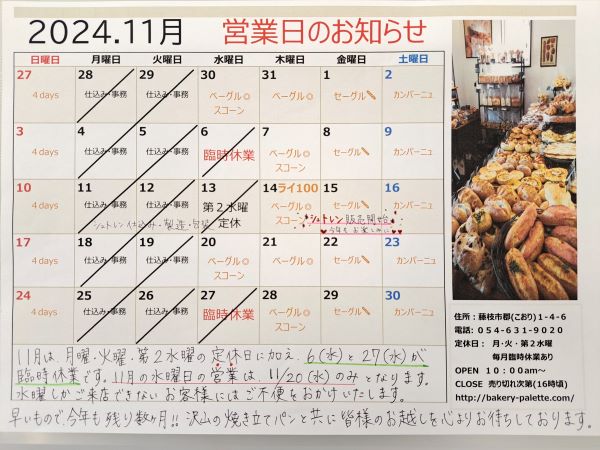 2024.11月 営業日のお知らせ
日曜日 月曜日 火曜日 水曜日 木曜日 金曜日 土曜日
27 28 29 30 31 1 2
4 days 仕込み・事務 仕込み・事務 ベーグル◎ ベーグル◎ セーグル カンパーニュ
スコーン
3 4 5 6 7 8 9
4 days 仕込み・事務 仕込み・事務 臨時休業 ベーグル◎ セーグル カンパーニュ
スコーン
10 11 12 13 14ライ100 15 16
4 days 仕込み・事務 仕込み・事務 第2水曜 ベーグル◎ セーグル カンパーニュ
シュトレン仕込み・製造・包装 定休 スコーン シュトレン販売開始
今年もお楽しみに
17 18 19 20 21 22 23
4 days 仕込み・事務 仕込み・事務 ベーグル◎ ベーグル◎ セーグル カンパーニュ
スコーン スコーン
24 25 26 27 28 29 30
4 days 仕込み・事務 仕込み・事務 臨時休業 ベーグル◎ セーグル カンパーニュ
スコーン
11月は、月曜・火曜・第2水曜の定休日に加え、6(水)と27(水)が
臨時休業です。11月の水曜日の営業は、11/20(水)のみとなります。
水曜しかご来店できないお客様にはご不便をおかけいたします。
早いもので、今年も残り数ヶ月!!沢山の焼き立てパンと共に皆様のお越しを心よりお待ちしております。
住所:藤枝市郡(こおり)1-4-6
電話:054-631-9020
定休日: 月・火・第2水曜
毎月臨時休業あり
OPEN 10:00am～
CLOSE 売り切れ次第(16時頃)
http://bakery-palette.com/